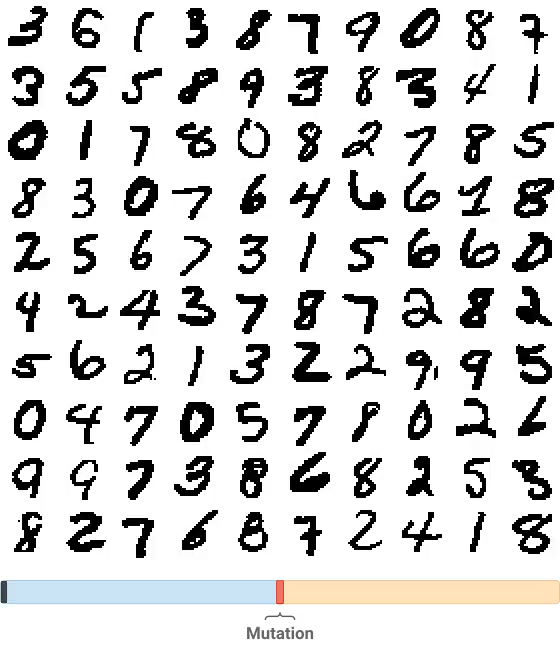 3 6 1 3 8 7 9 0 8 7
3 5 5 8 9 3 8 3 4 1
0 1 7 8 0 8 2 7 8 5
8 3 0 7 6 4 6 6 1 8
2 5 6 7 3 1 5 6 6 0
4 2 4 3 7 8 7 2 8 2
5 6 2 1 3 2 2 9 9 5
0 4 7 0 5 7 8 0 2 6
9 9 7 3 8 6 8 2 5 3
8 2 7 6 8 7 2 4 1 8
Mutation